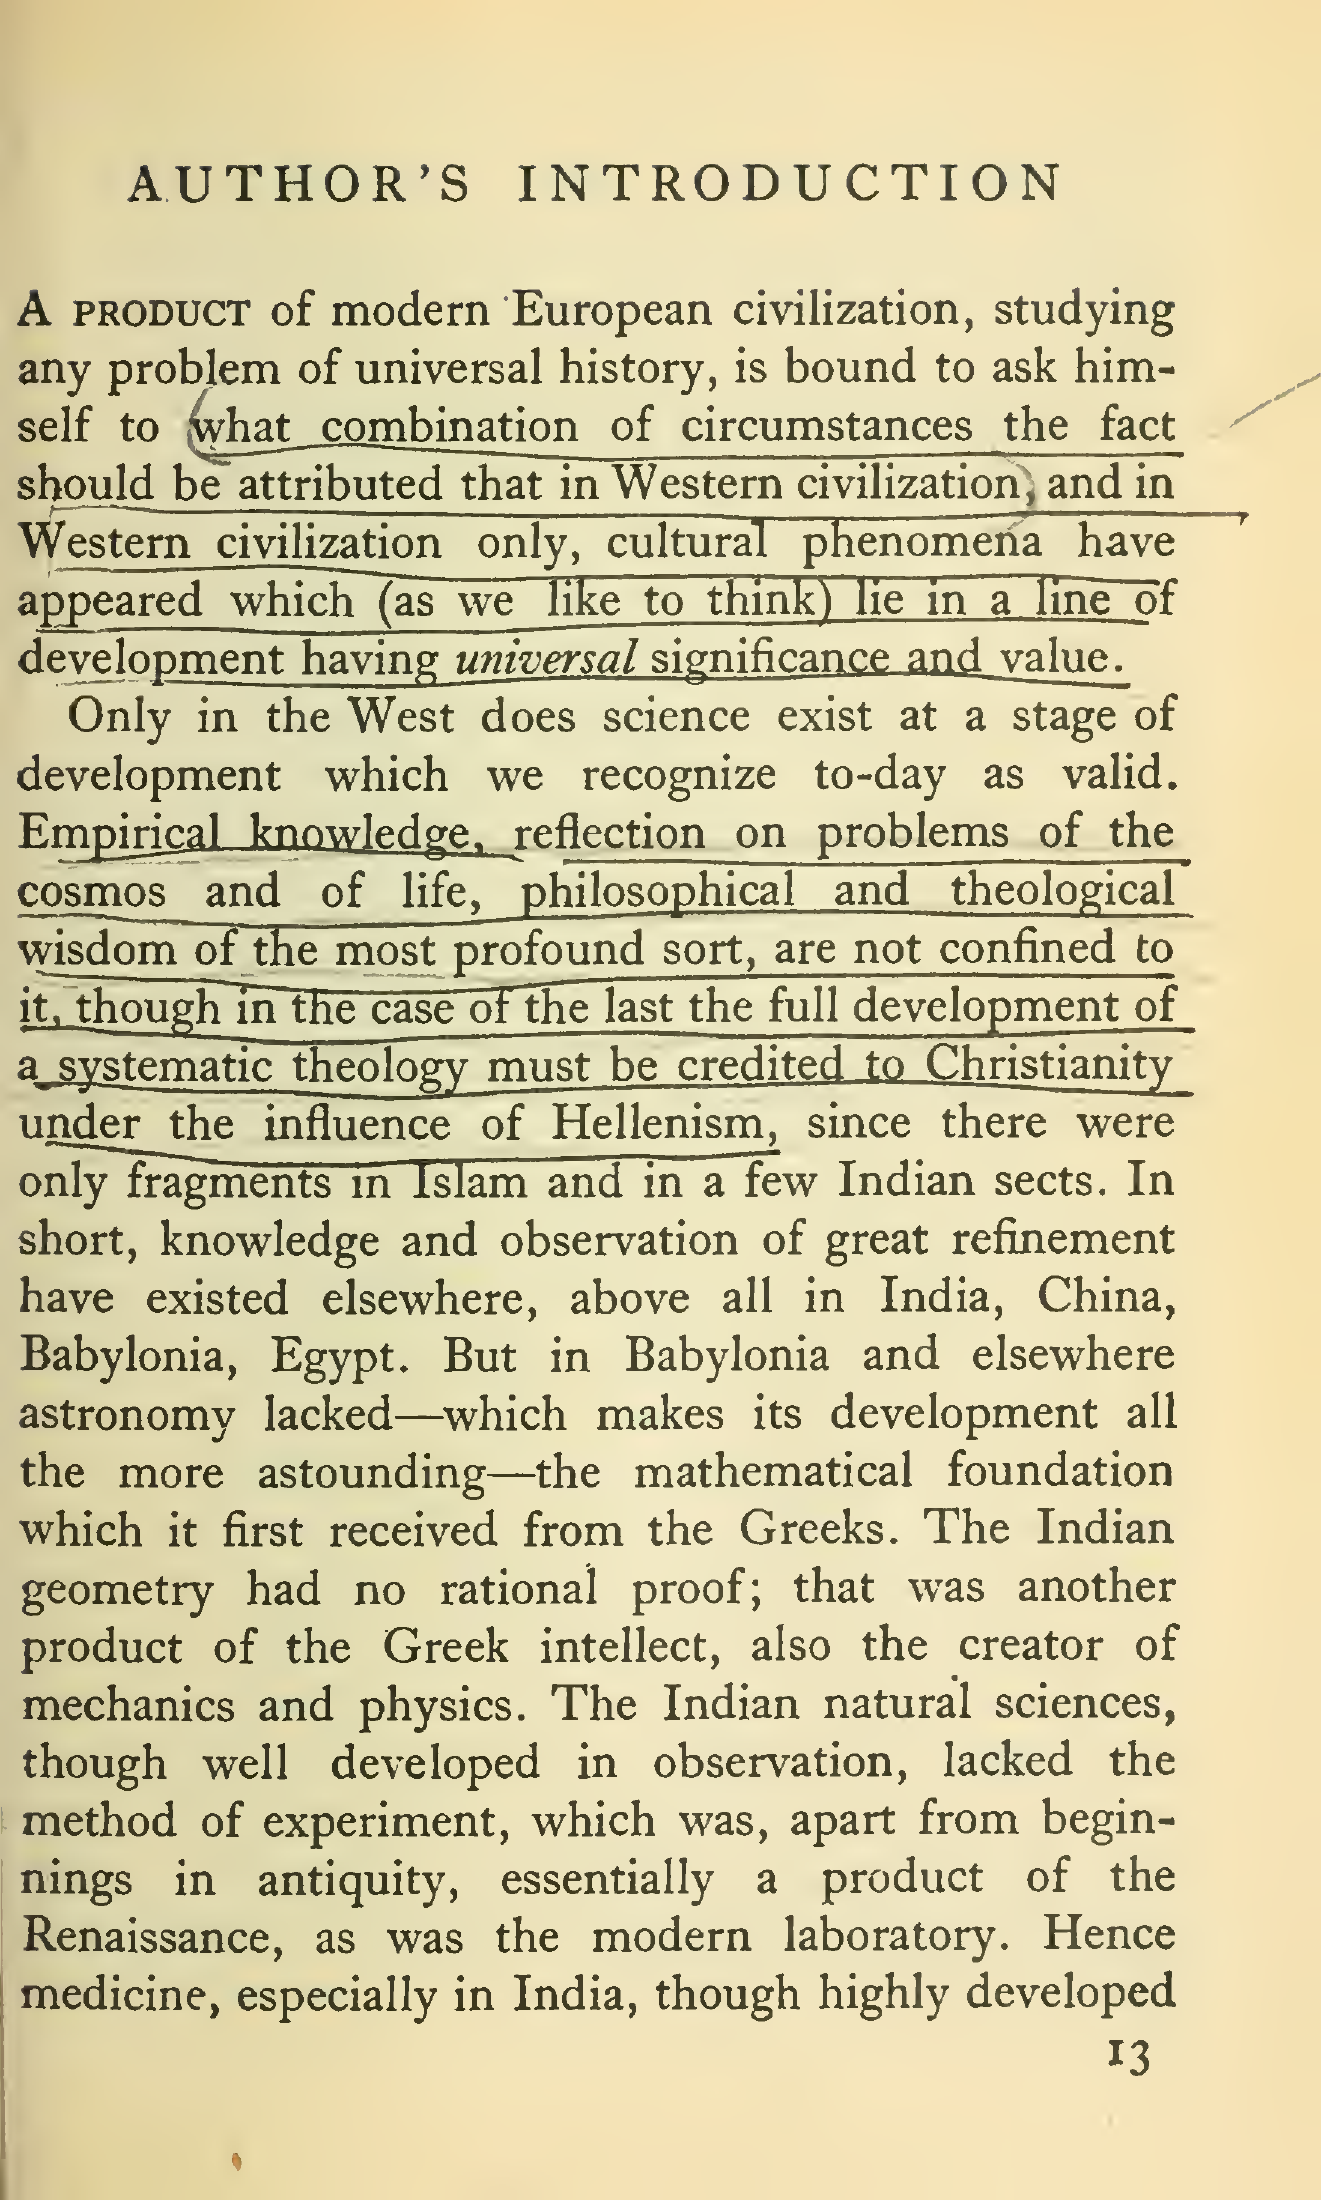 AUTHOR'S INTRODUCTION
A PRODUCT of modern European civilization, studying
any problem of universal history, is bound to ask him-
self to what combination of circumstances the fact
should be attributed that in Western civilization, and in
Western civilization only, cultural phenomena have
appeared which (as we like to think) lie in a line of
development having universal significance and value.
Only in the West does science exist at a stage of
development which we recognize to-day as valid.
Empirical knowledge, reflection on problems of the
cosmos and of life, philosophical and theological
wisdom of the most profound sort, are not confined to
it, though in the case of the last the full development of
a systematic theology must be credited to Christianity
under the influence of Hellenism, since there were
only fragments in Islam and in a few Indian sects. In
short, knowledge and observation of great refinement
have existed elsewhere, above all in India, China,
Babylonia, Egypt. But in Babylonia and elsewhere
astronomy lacked—which makes its development all
the more astounding—the mathematical foundation
which it first received from the Greeks. The Indian
geometry had no rational proof; that was another
product of the Greek intellect, also the creator of
mechanics and physics. The Indian natural sciences,
though well developed in observation, lacked the
method of experiment, which was, apart from begin-
nings in antiquity, essentially a product of the
Renaissance, as was the modern laboratory. Hence
medicine, especially in India, though highly developed
13